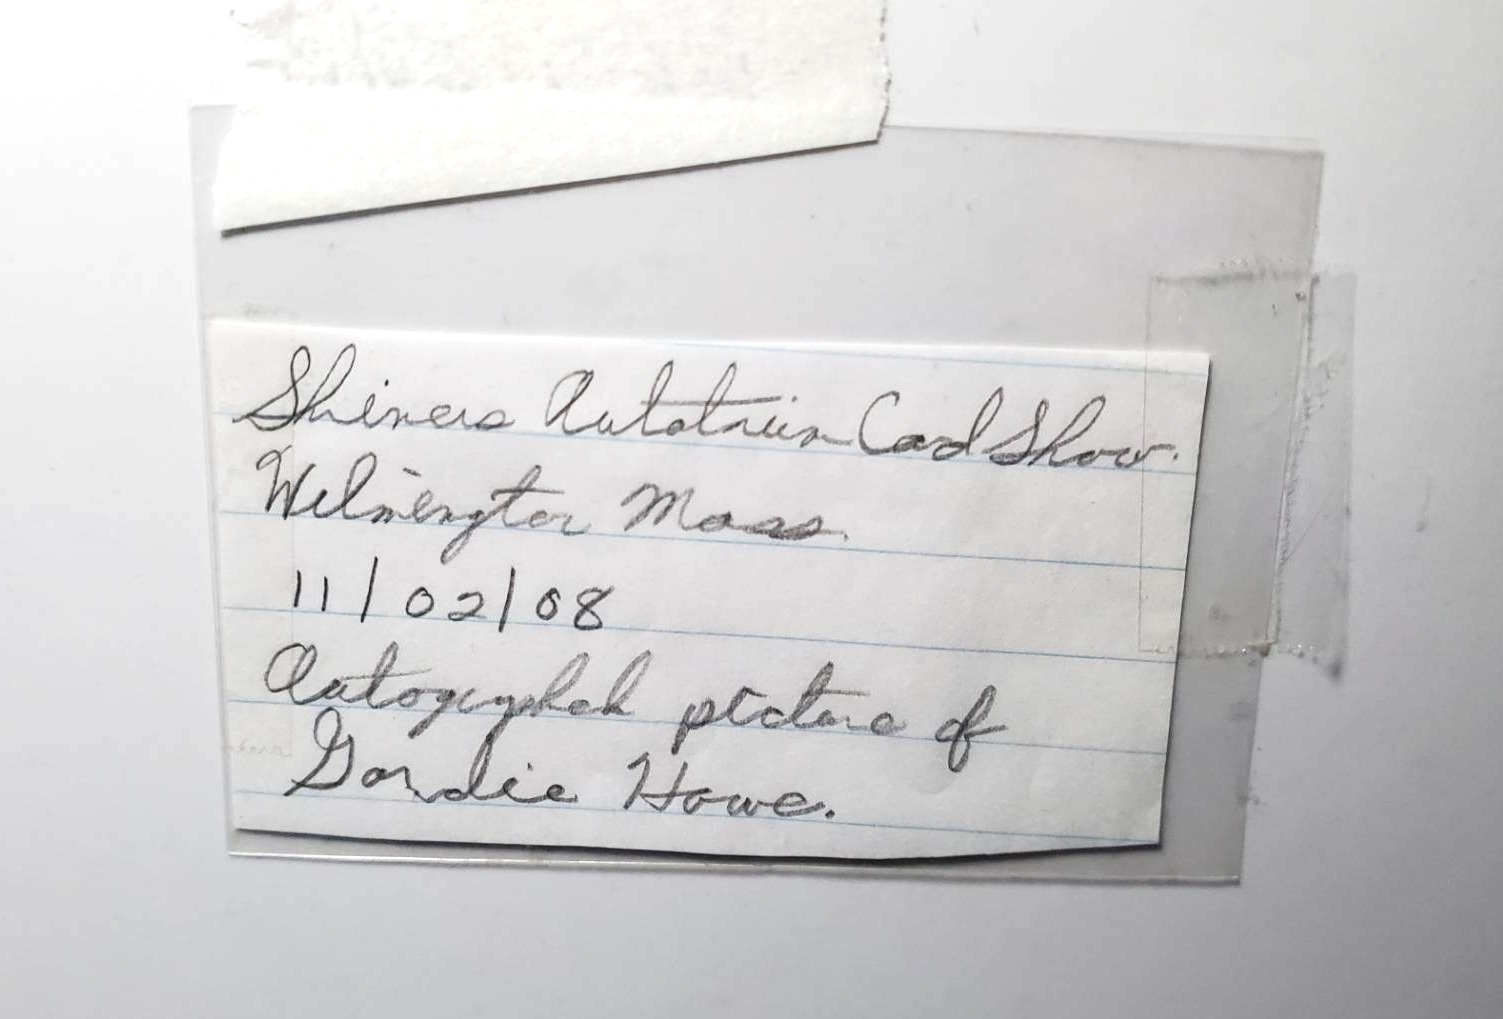 Shiners Autotriun Card Show.
Wilmington Mass.
11/02/08
Autogryhah picture of
Gordie Howe.